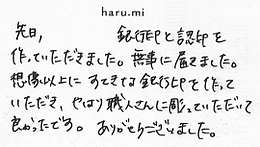 haru.mi
先日、 銀行印と認印を
作っていただきました。無事に届きました。
想像以上に すてきな銀行印を作って
いただき、やはり職人さんに彫っていただいて
良かったです。ありがとうございました。